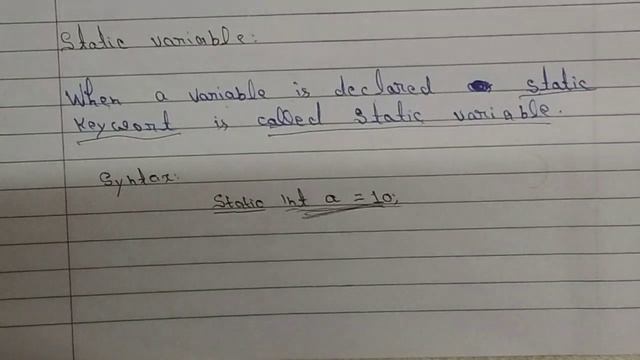 Static variable:
When a variable is declared static
keywort is called static variable.
Syntax:
Static int a = 10;